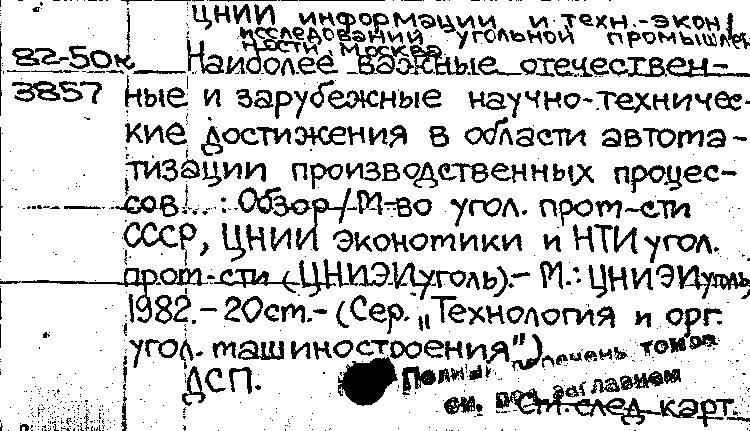 ЦНИИ информации и техн.-экон.
исследований угольной промышлен
ности, Москва
82-50к Наиболее важные отечествен-
3857 ные и зарубежные научно-техничес-
кие достижения в области автома-
тизации производственных процес-
сов... : Обзор/М-во угол. пром-сти
СССР, ЦНИИ экономики и НТИ угол.
пром-сти (ЦНИЭИуголь).- М.: ЦНИЭИуголь,
1982.- 20см.- (Сер. „Технология и орг.
угол. машиностроения")
ДСП.
Полный перечень томов
см. под заглавием
См. след. карт.